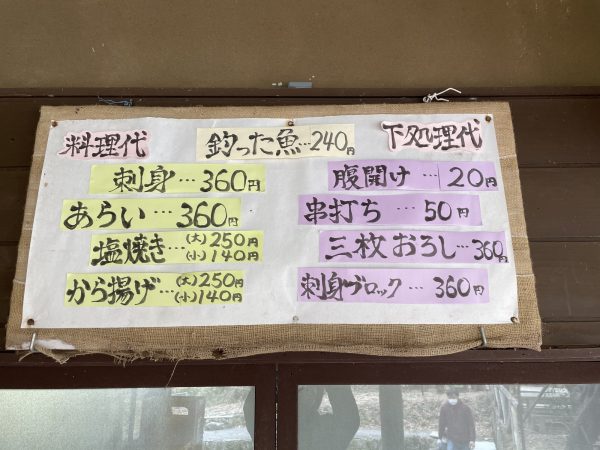 料理代
釣った魚…240円
下処理代
刺身…360円
あらい…360円
塩焼き…(大)250円
(小)140円
から揚げ…(大)250円
(小)140円
腹開け…20円
串打ち…50円
三枚おろし…360円
刺身ブロック…360円